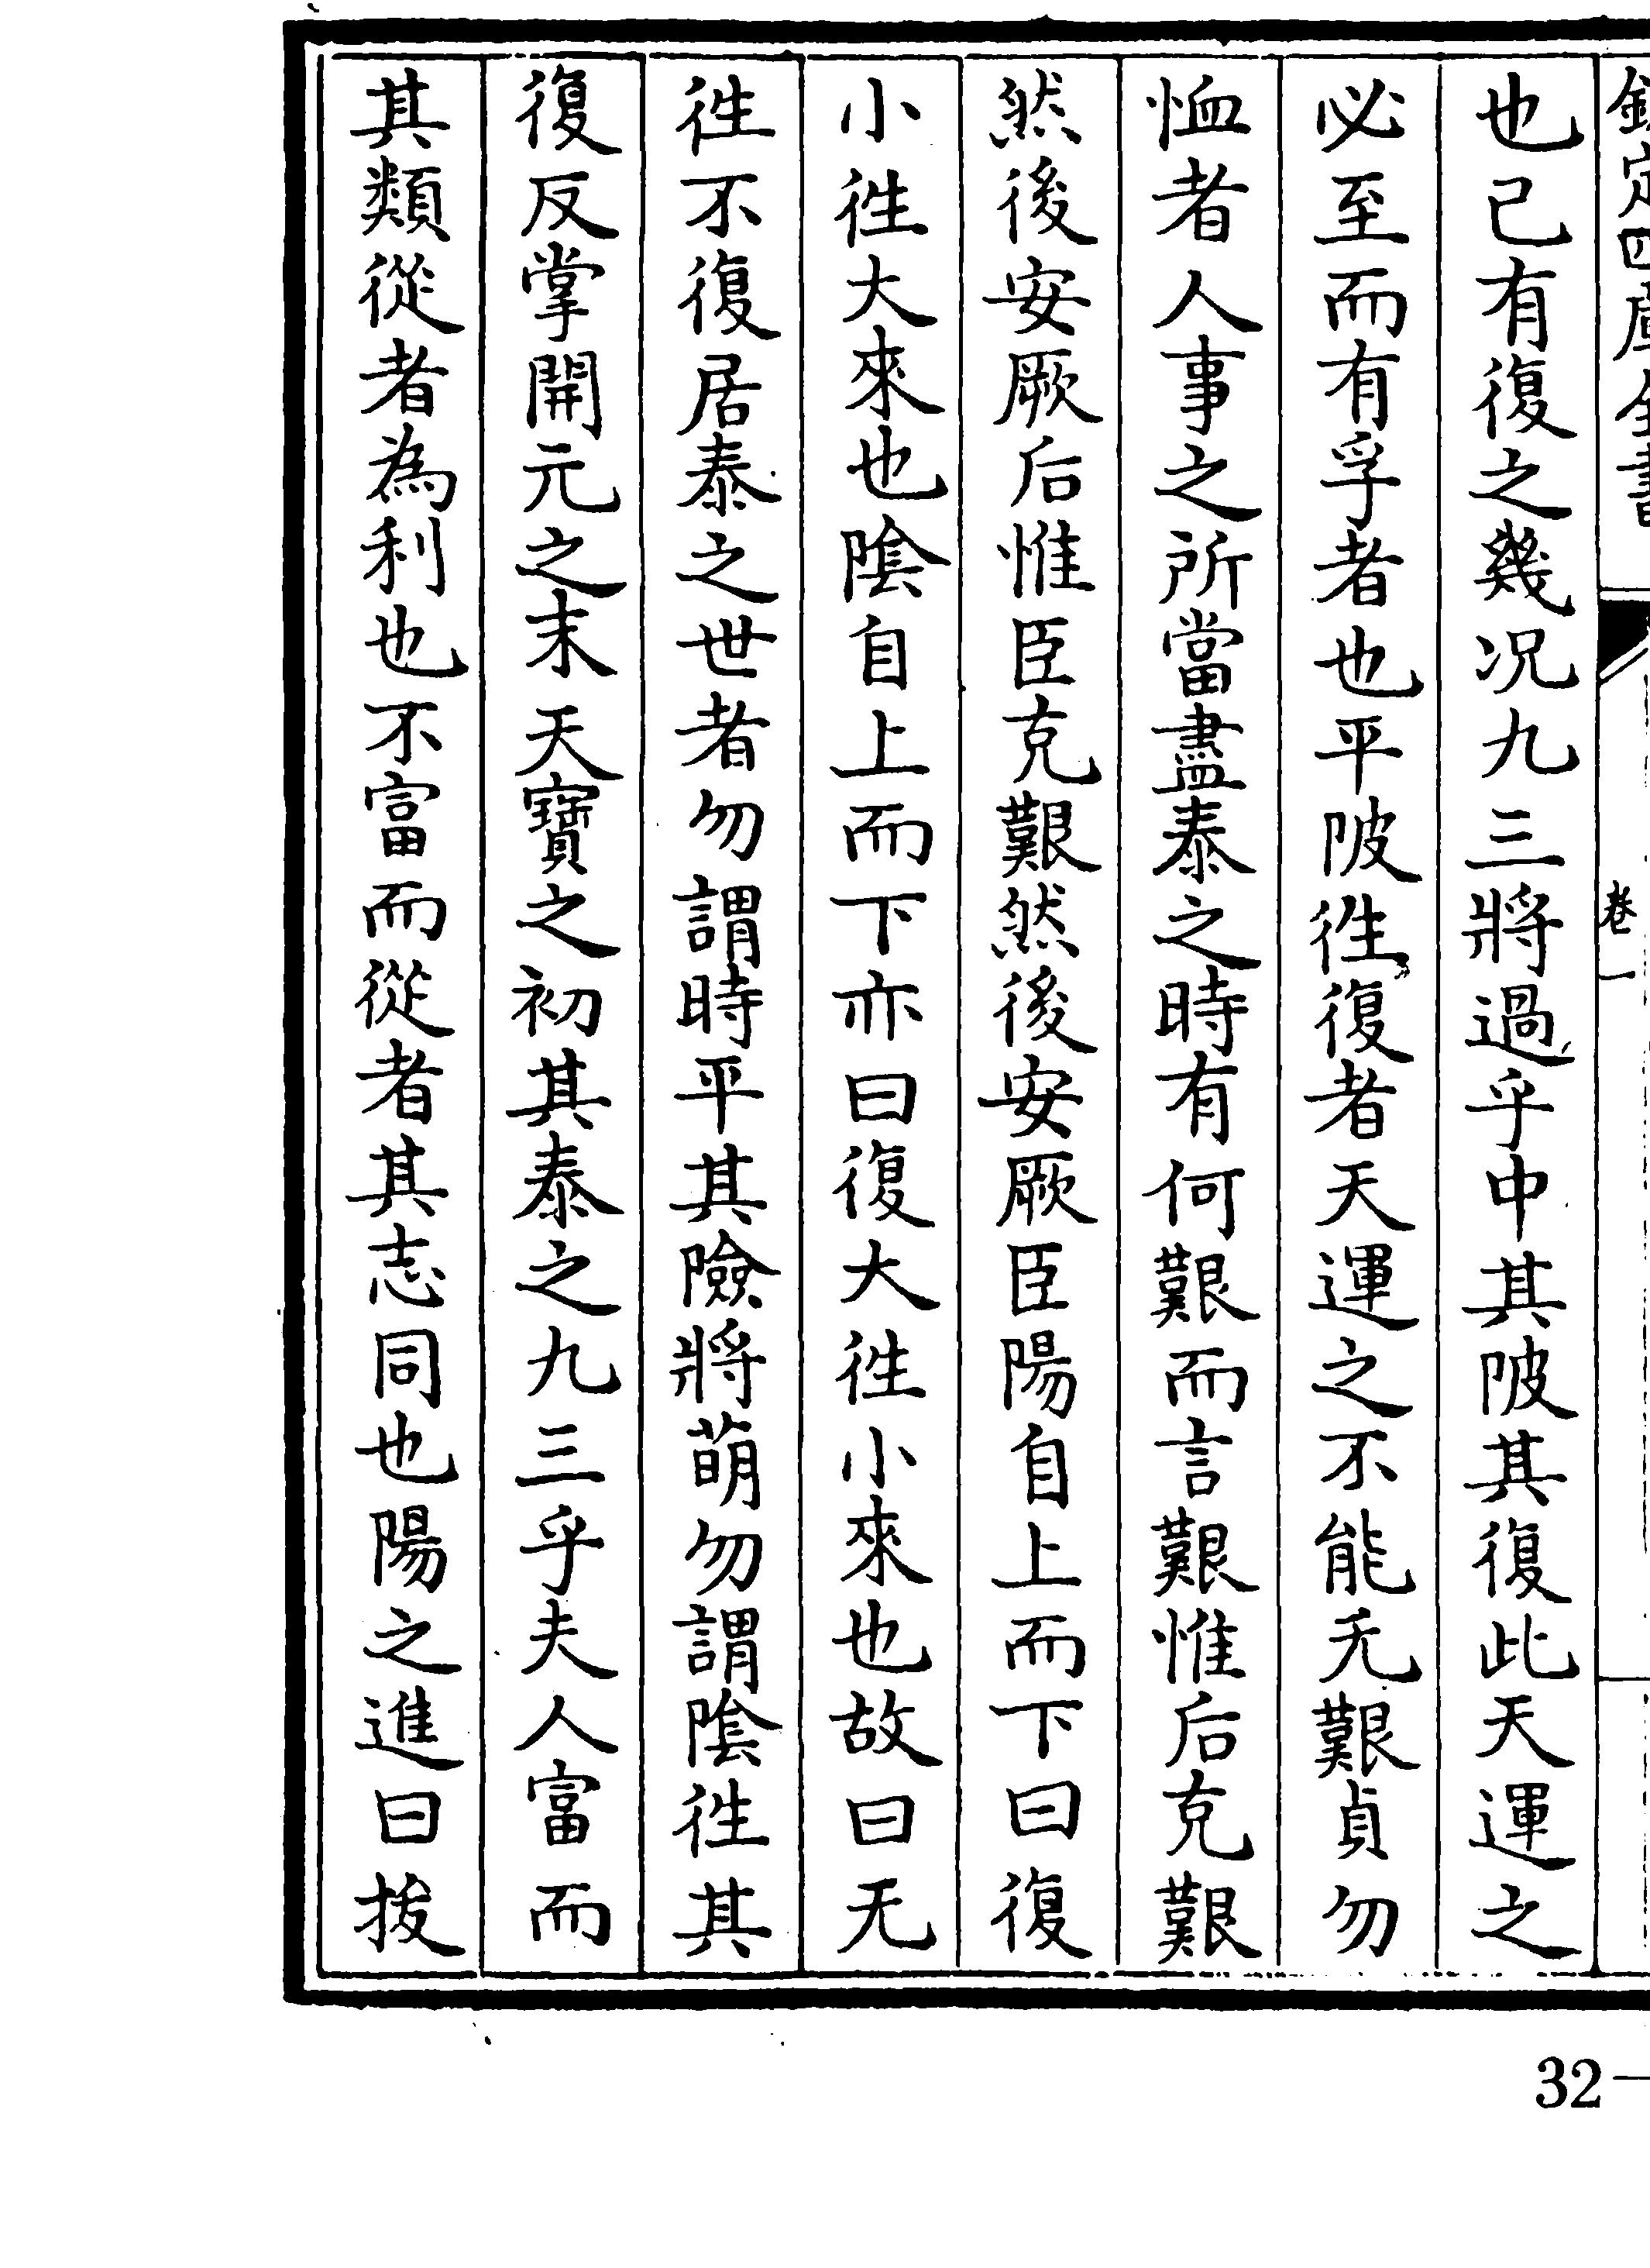 欽定四庫全書 卷一
也已有復之幾况九三將過乎中其陂其復此天運之
必至而有孚者也平陂徃復者天運之不能无艱貞勿
恤者人事之所當盡泰之時有何艱而言艱惟后克艱
然後安厥后惟臣克艱然後安厥臣陽自上而下曰復
小徃大來也陰自上而下亦曰復大徃小來也故曰无
徃不復居泰之世者勿謂時平其險將萌勿謂陰徃其
復反掌開元之末天寶之初其泰之九三乎夫人富而
其類從者為利也不富而從者其志同也陽之進曰拔
32